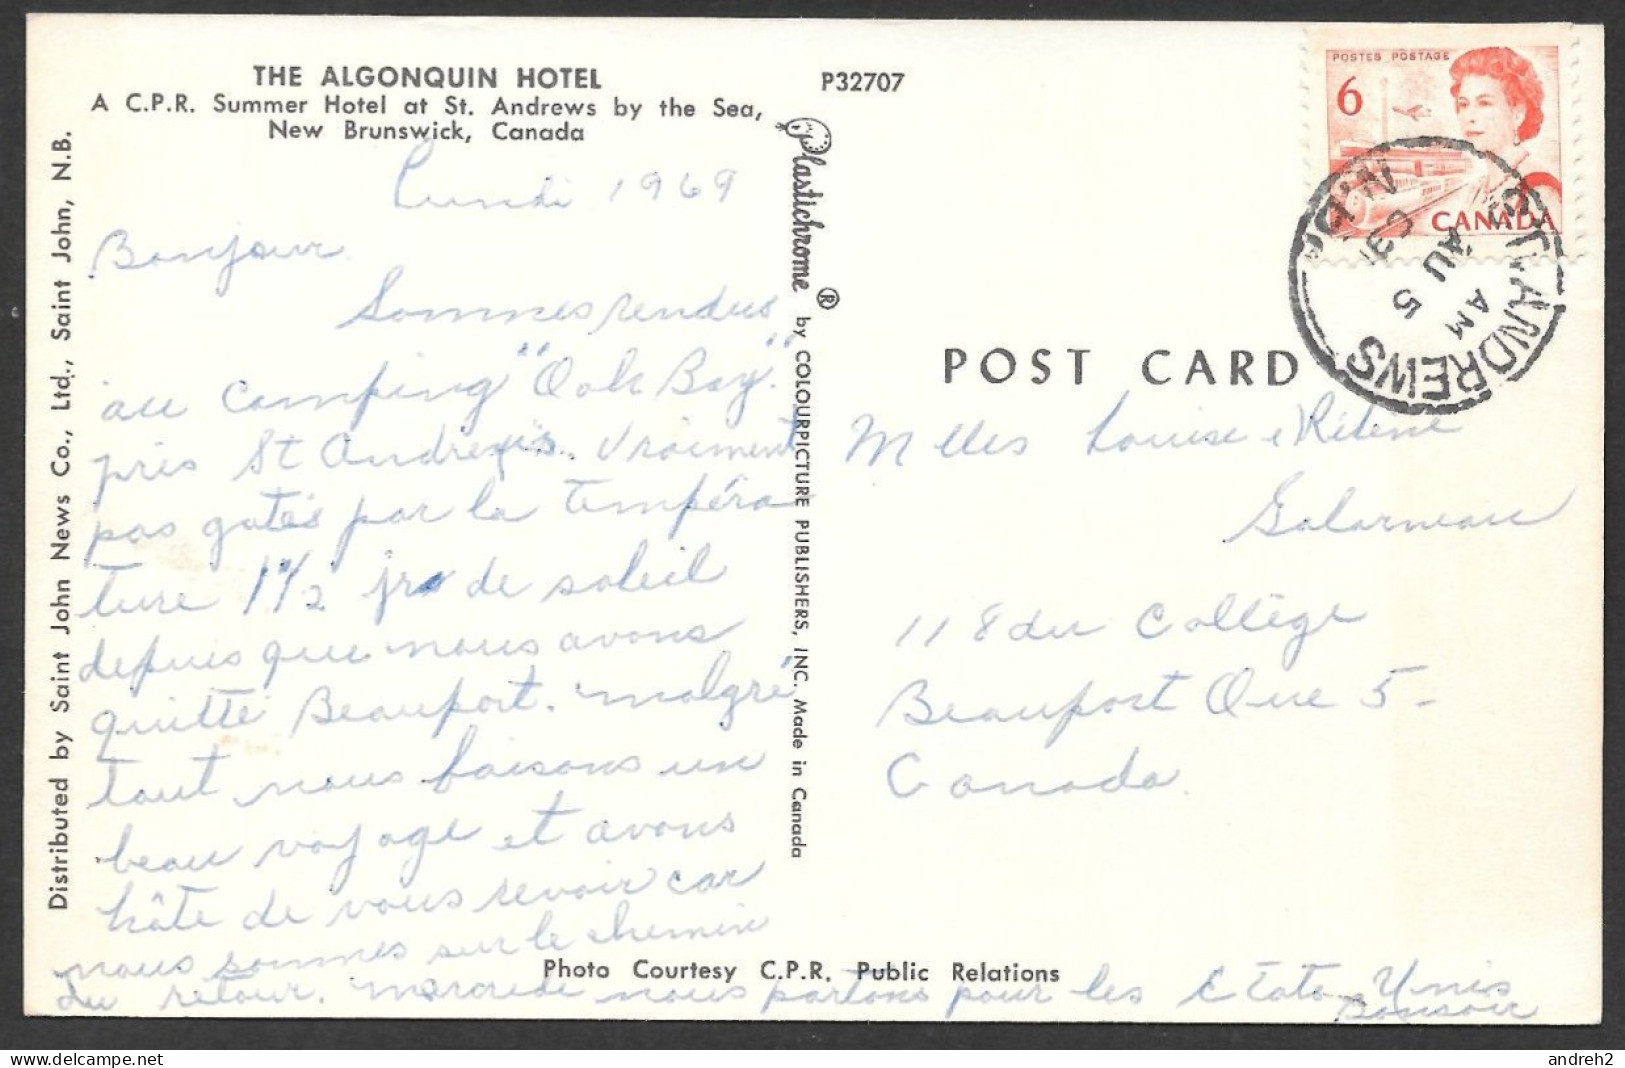 THE ALGONQUIN HOTEL
A C.P.R. Summer Hotel at St. Andrews by the Sea,
New Brunswick, Canada
P32707
POSTES POSTAGE
6
CANADA
ST. ANDREWS
AM
AU 5
N.B.
Distributed by Saint John News Co., Ltd., Saint John, N.B.
Plastichrome ® by COLOURPICTURE PUBLISHERS, INC. Made in Canada
POST CARD
Lundi 1969
Bonjour
Sommes rendus
au camping "Oak Bay"
près St Andrews. Vraiment
pas gatés par la tempéra
ture 1 1/2 jrs de soleil
depuis que nous avons
quitté Beauport. malgré
tout nous faisons un
beau voyage et avons
hâte de vous revoir car
nous sommes sur le chemin
du retour. mercredi nous partons pour les États Unis
Bonsoir
Melles Louise &
Galarneau
118 du Collège
Beauport Que 5-
Canada
Photo Courtesy C.P.R. Public Relations
andreh2